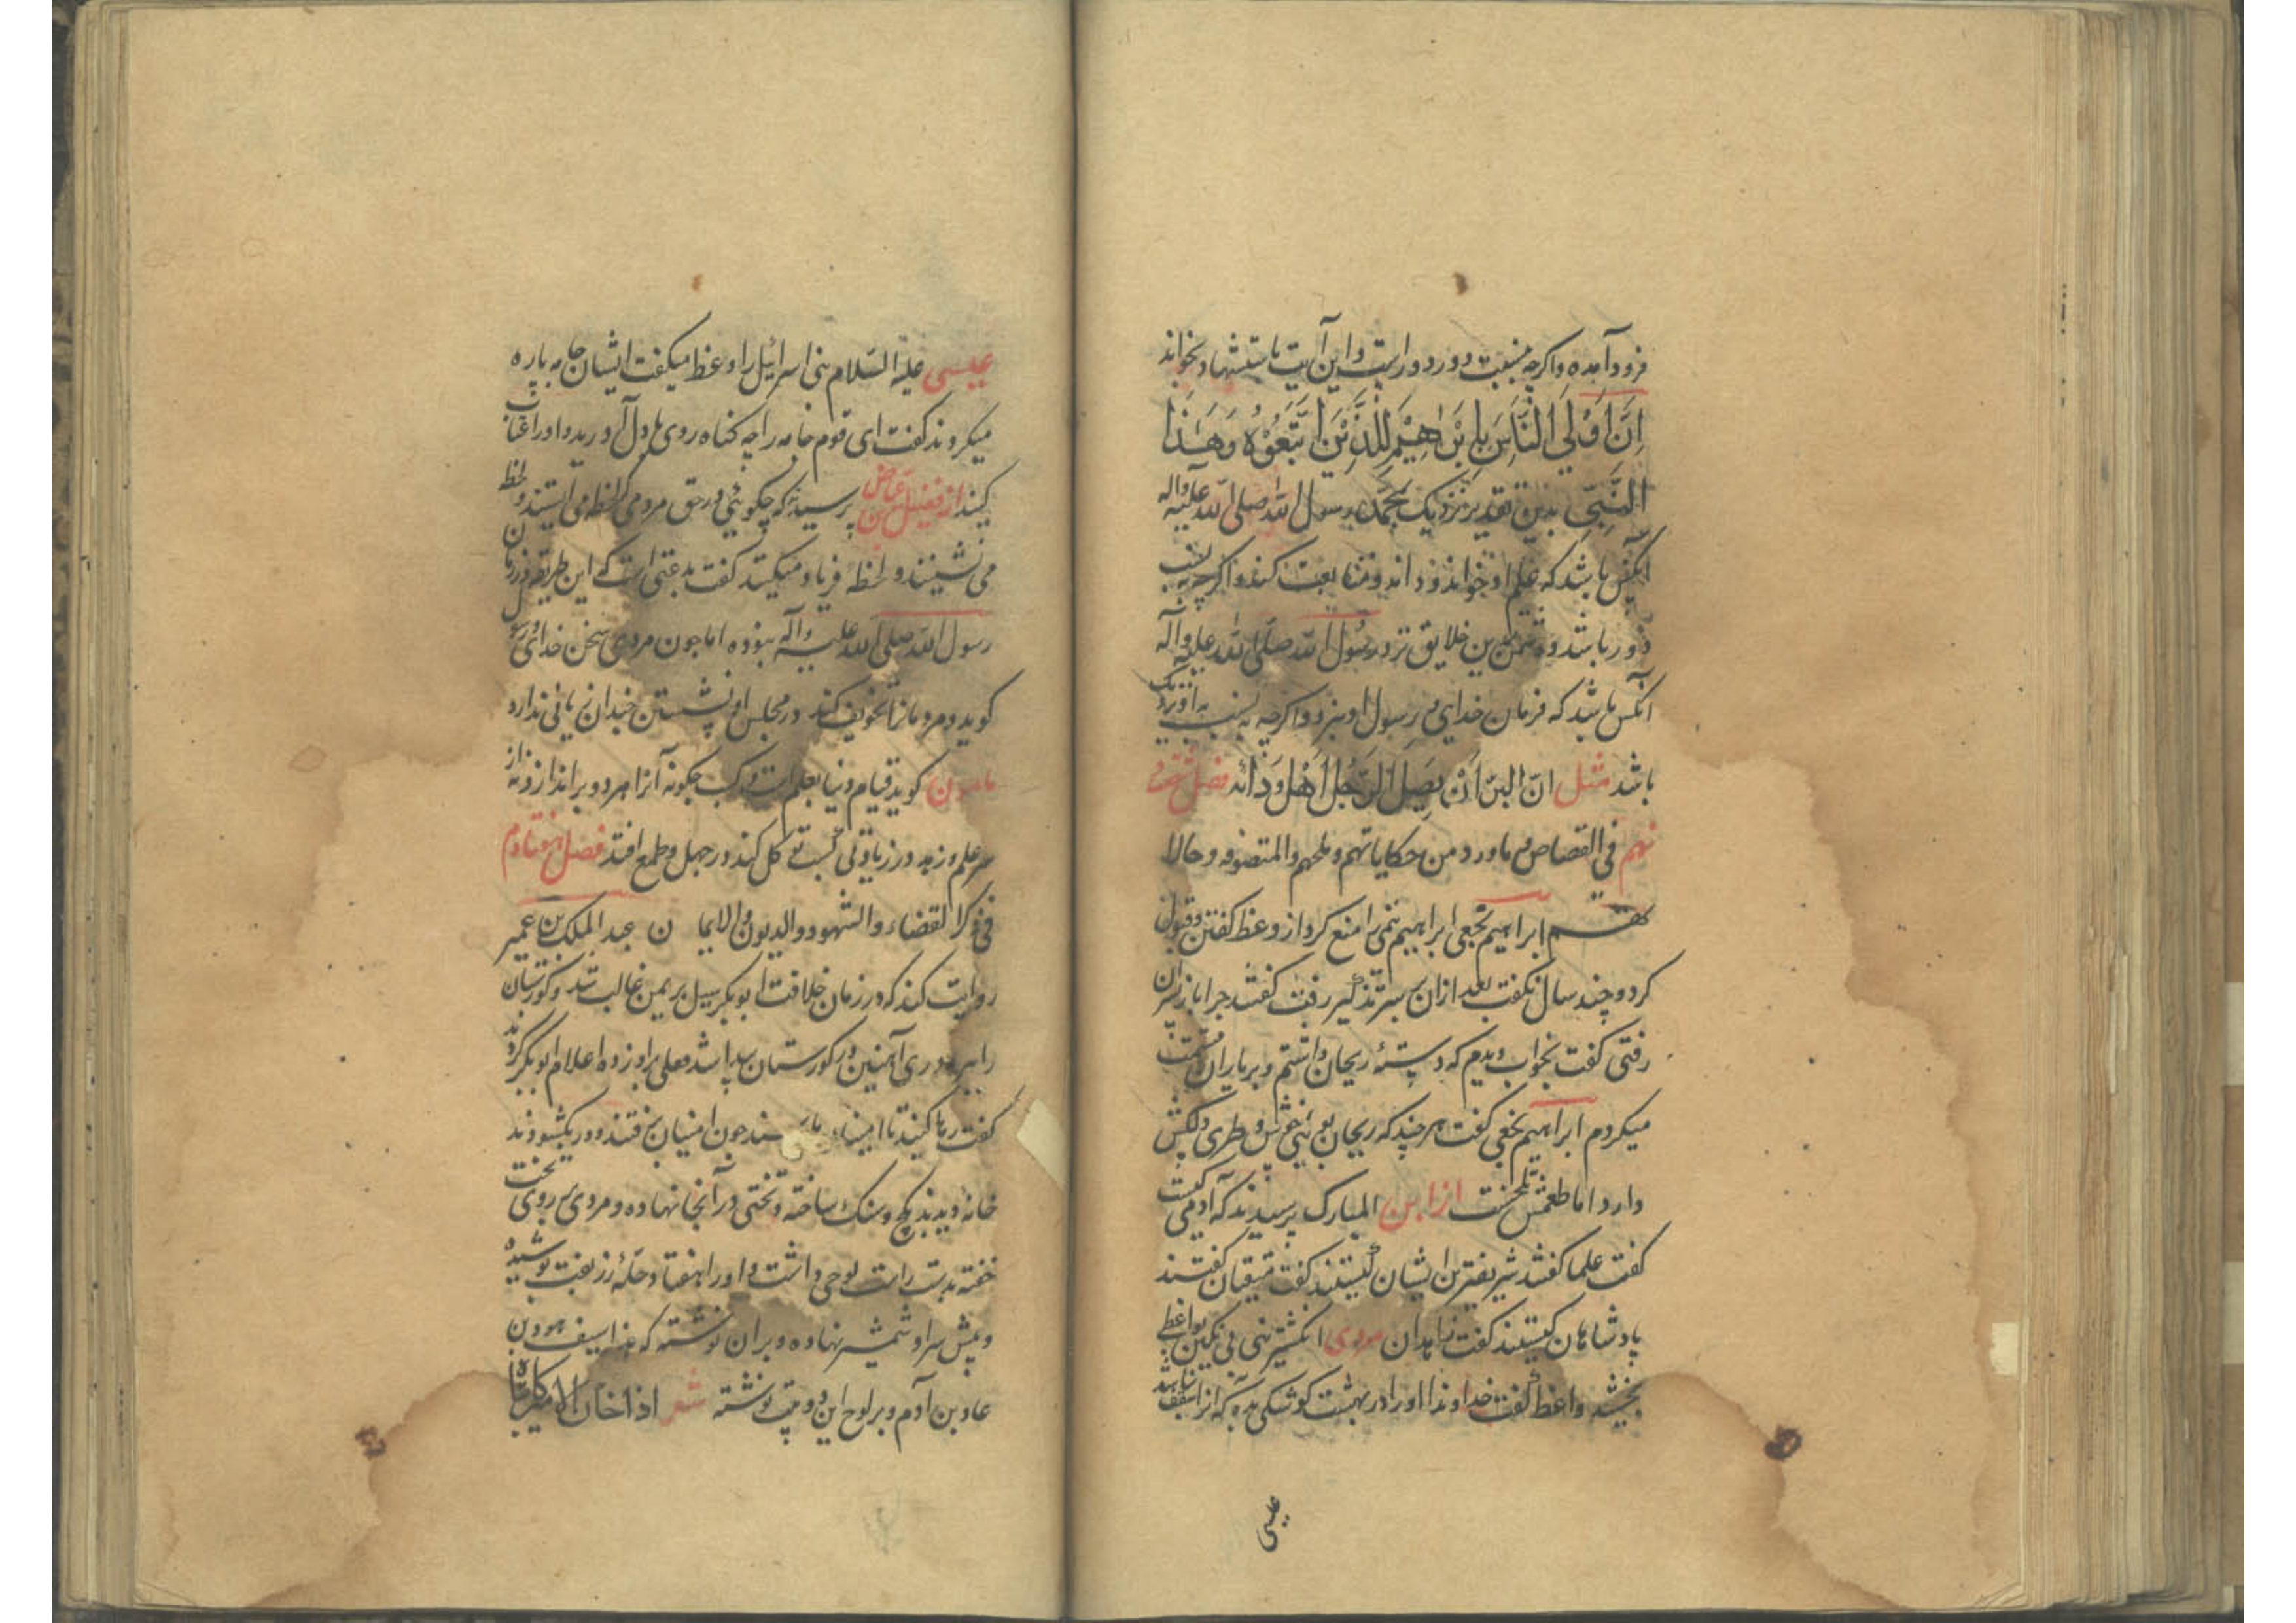 فرود آمده و اگرچه بنسبت دور دورست و این آیت باستشهاد بخواند
اِنَّ اَوْلَی النَّاسِ بِاِبْرٰهِیْمَ لَلَّذِیْنَ اتَّبَعُوْهُ وَهٰذَا
النَّبِیّ بدین تقدیر نزدیک بمحمد رسول الله صلی الله علیه واله
آنکس باشد که علم او خواند و داند و متابعت کند و اگرچه به نسب
دور باشد و دشمن ترین خلایق نزد رسول الله صلی الله علیه واله
آنکس باشد که فرمان خدای و رسول او نبرد و اگرچه به نسبت به او نزدیک
باشد مثل ان البرّ اَنْ یَصِلَ الرَّجُلُ اَهْلَ وُدّ ابیه فصل شصت و
نهم فی القصاص و ماورد من حکایاتهم و ملحهم والمتصوفه و حالا
تهم ابراهیم نخعی ابراهیم تیمی را منع کرد از وعظ گفتن و قبول
کرد و چند سال نگفت بعد ازان بر سر تذکیر رفت گفتند چرا باز بر آن
رفتی گفت بخواب دیدم که دستهٔ ریحان داشتم و بر یاران قسمت
میکردم ابراهیم نخعی گفت هر چند که ریحان بوئی خوش و طری دلکش
دارد اما طعمش تلخست از ابن المبارک پرسیدند که آدمی کیست
گفت علما گفتند شریفترین ایشان کیستند گفت متقیان گفتند
پادشاهان کیستند گفت زاهدان مردی انگشتری بی نگین بواعظی
بخشید واعظ گفت خداوندا او را در بهشت کوشکی بده که آنرا سقف نباشد
عیسی
عیسی علیه السّلام بنی اسرائیل را وعظ میگفت ایشان جامه پاره
میکردند گفت ای قوم جامه را چه گناه روی با دل آورید و او را عتاب
کنید از فضیل بن عیاض پرسیدند که چگوئی در حق مردمی که لحظه می ایستند و لحظه
می نشینند و لحظهٔ فریاد میکنند گفت بدعتی است که این طریقه در زمان
رسول الله صلی الله علیه واله نبوده اما چون مردی سخن خدای و رسول
گوید و مردمانرا تخویف کند در مجلس او نشستن چندان زیانی ندارد
مامون گوید قیام دنیا بعلم است و کسب چگونه آنرا هر دو براندازد نه از
سر علم و زهد در زیادتی کسب توکل کند در جهل و طمع افتد فصل هفتادم
فی ذکر القضاء والشهود والدیون والایمان عبد الملک بن عمیر
روایت کند که در زمان خلافت ابوبکر سیل بر یمن غالب شد و کورستان
را ببرد دری آهنین در کورستان پیدا شد قفلی بر او زده اعلام ابوبکر کردند
گفت رها کنید تا امینان چون امینان برفتند و در بگشودند
خانهٔ دیدند بگچ و سنگ ساخته و تختی در آنجا نهاده و مردی بر روی تخت
خفته بدست راست لوحی داشت و او را هفتاد حلهٔ زربفت پوشیده
و پیش سر او شمشیر نهاده و بران نوشته که هذا سیف هود بن
عاد بن آدم و بر لوح این دو بیت نوشته شعر اذا خان الامیر کاتباه